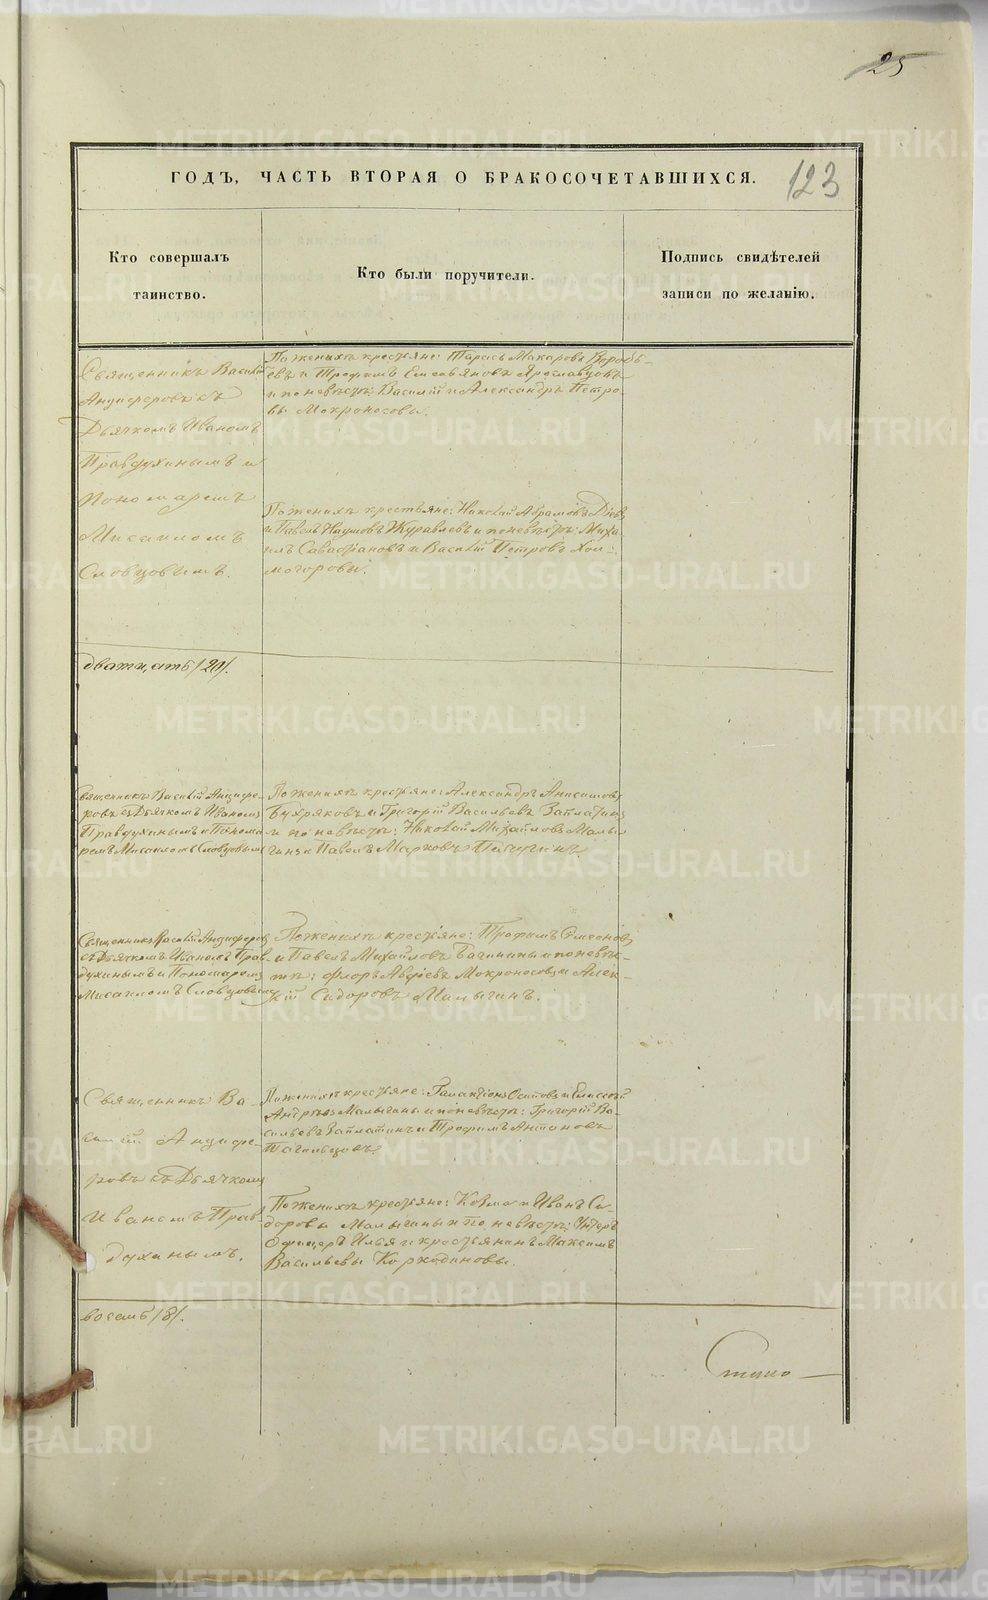 25
ГОДЪ, ЧАСТЬ ВТОРАЯ О БРАКОСОЧЕТАВШИХСЯ.
123
Кто совершалъ
таинство.
Кто были поручители.
Подпись свидѣтелей
записи по желанію.
Священникъ Василій
Анциферовъ съ
Дьячкомъ Иваномъ
Правдухинымъ и
Пономаремъ
Мисаиломъ
Словцовымъ.
По женихѣ крестьяне: Тарасъ Макаровъ Воробь-
евъ и Трофимъ Емельяновъ Ярославцовъ
и по невѣстѣ: Василій и Александръ Петро-
вы Мокроносовы.
По женихѣ крестьяне: Николай Абрамовъ
и Павелъ Наумовъ Журавлевъ и по невѣстѣ: Миха-
илъ Савастіановъ и Василій Петровъ Хол-
могоровы.
дватцать /20/.
Священникъ Василій Анцифе-
ровъ съ Дьячкомъ Иваномъ
Правдухинымъ и Понома-
ремъ Мисаиломъ Словцовымъ
По женихѣ крестьяне: Александръ Анисимовъ
Бухряковъ и Григорій Васильевъ Заплатинъ
и по невѣстѣ: Николай Михайловъ Малы-
гинъ и Павелъ Марковъ Пичугинъ.
Священникъ Василій Анциферовъ
съ Дьячкомъ Иваномъ Прав-
духинымъ и Пономаремъ
Мисаиломъ Словцовымъ
По женихѣ крестьяне: Трофимъ Симеоновъ
и Павелъ Михайловъ Бачинины и по невѣс-
тѣ: Флоръ Авдіевъ Мокроносовъ и Алек-
ѣй Сидоровъ Малыгинъ.
Священникъ Ва-
силій Анцифе-
ровъ съ Дьячкомъ
Иваномъ Прав-
духинымъ.
По женихѣ крестьяне: Галактіонъ Осиповъ и Елисей
Андреевъ Малыгины и по невѣстѣ: Григорій Ва-
сильевъ Заплатинъ и Трофимъ Антоновъ
Тагильцовъ.
По женихѣ крестьяне: Козма и Иванъ Си-
доровы Малыгины и по невѣстѣ: Унтеръ
Офицеръ Илья и крестьянинъ Максимъ
Васильевы Коркодиновы.
восемь /8/.
METRIKI.GASO-URAL.RU